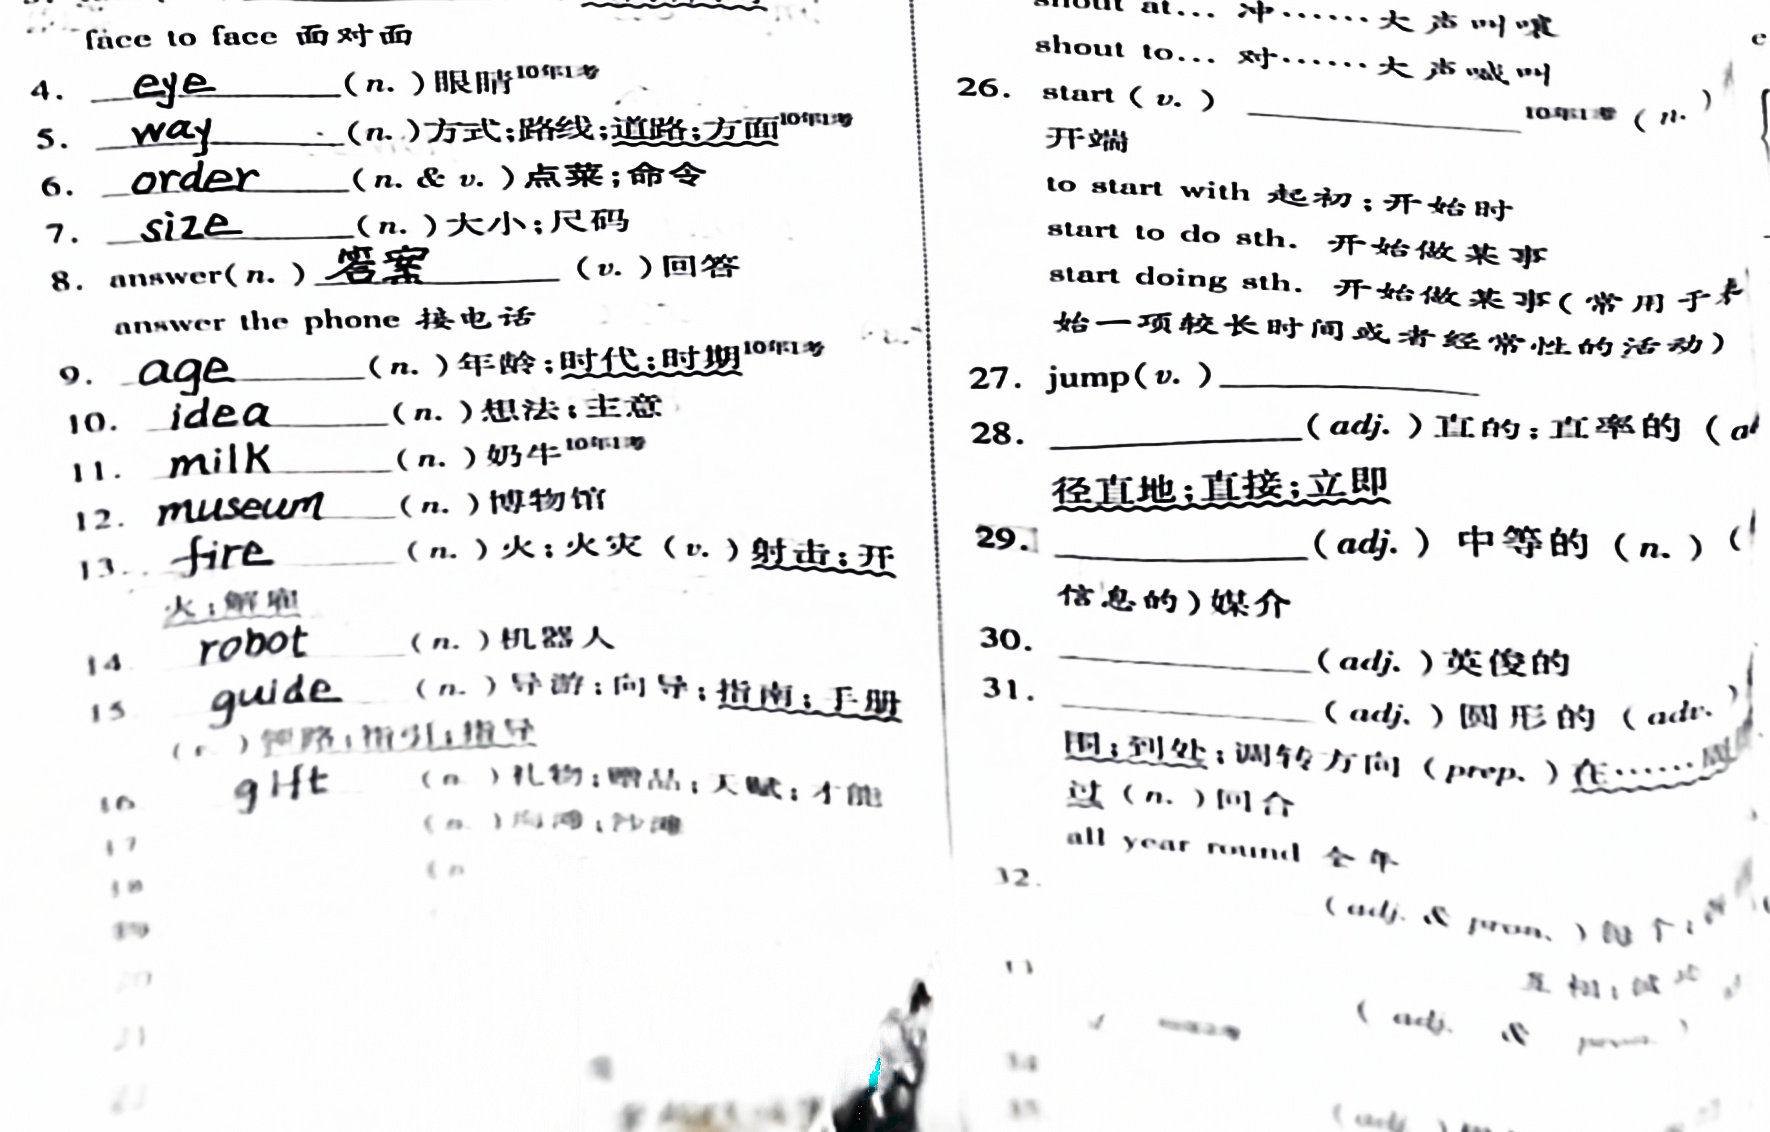 face to face 面对面
4. eye (n.)眼睛10年1考
5. way (n.)方式;路线;道路;方面10年1考
6. order (n. & v.)点菜;命令
7. size (n.)大小;尺码
8. answer(n.) 答案 (v.)回答
answer the phone 接电话
9. age (n.)年龄;时代;时期10年1考
10. idea (n.)想法;主意
11. milk (n.)奶牛10年1考
12. museum (n.)博物馆
13. fire (n.)火;火灾(v.)射击;开
火;解雇
14 robot (n.)机器人
15 guide (n.)导游;向导;指南;手册
指引;指导
16 gift (n )礼物;赠品;天赋;才能
17 沙滩
18 (n
19
shout at… 冲……大声叫嚷
shout to… 对……大声喊叫
26. start(v.) 10年1考(n.)
开端
to start with 起初;开始时
start to do sth. 开始做某事
start doing sth. 开始做某事(常用于
始一项较长时间或者经常性的活动)
27. jump(v.)
28. (adj.)直的;直率的(a
径直地;直接;立即
29. (adj.)中等的(n.)(
信息的)媒介
30. (adj.)英俊的
31. (adj.)圆形的(adv.
围;到处;调转方向(prep.)在……周
过(n.)回合
all year round 全年
32.
(adj. & pron.)
(adj. &